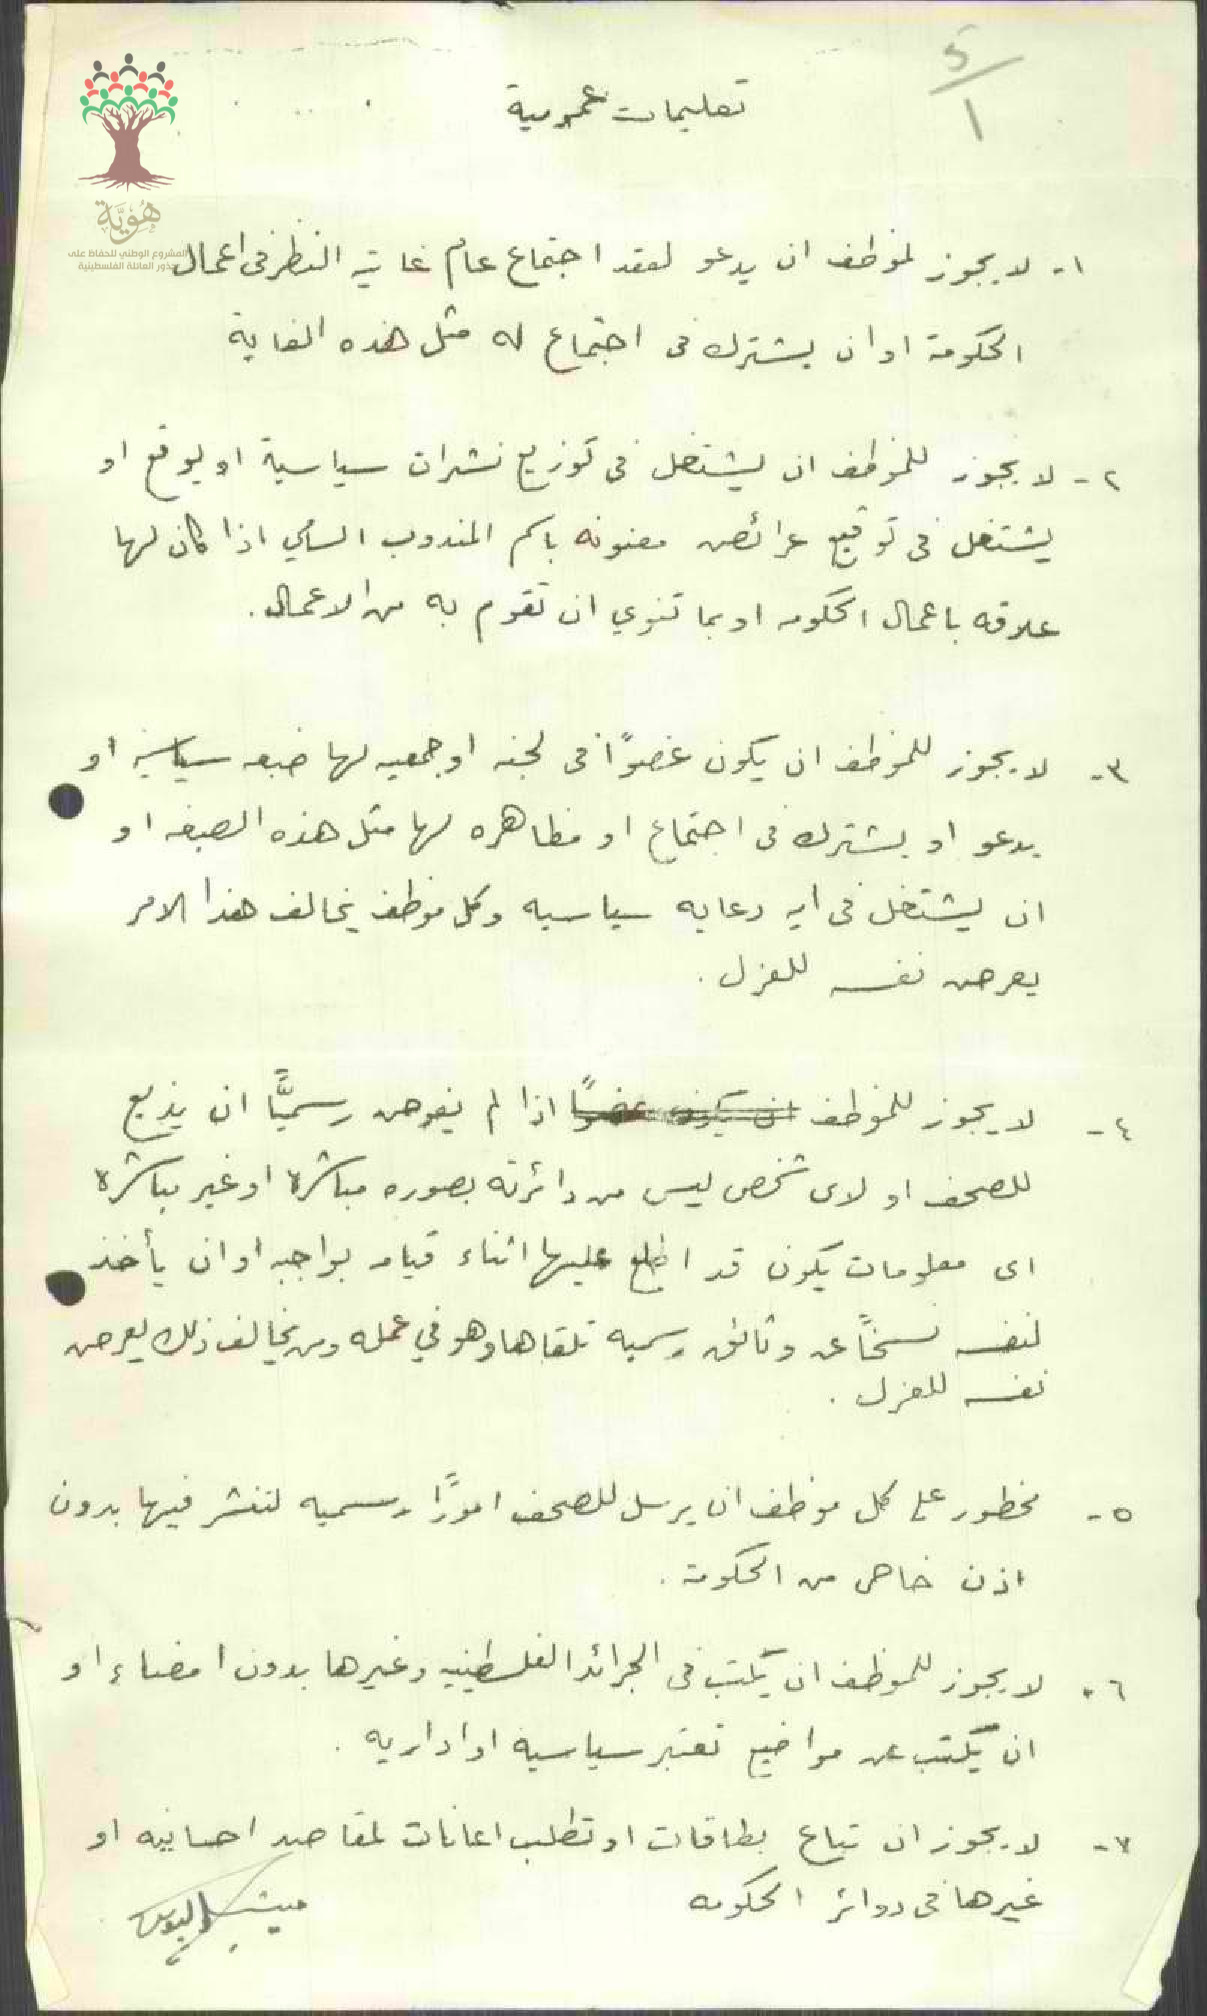 ٥/١
تعليمات عمومية
هُوِيَّة
المشروع الوطني للحفاظ على
جذور العائلة الفلسطينية
١- لا يجوز لموظف ان يدعو لعقد اجتماع عام غايته النظر في اعمال
الحكومة او ان يشترك في اجتماع له مثل هذه الغاية
٢- لا يجوز للموظف ان يشتغل في توزيع نشرات سياسية او يوقع او
يشتغل في توقيع عرائض معنونه باسم المندوب السامي اذا كان لها
علاقه باعمال الحكومه او بما تنوي ان تقوم به من الاعمال.
٣- لا يجوز للموظف ان يكون عضوًا في لجنه او جمعيه لها صبغه سياسيه او
يدعو او يشترك في اجتماع او مظاهره لها مثل هذه الصبغه او
ان يشتغل في ايه دعايه سياسيه وكل موظف يخالف هذا الامر
يعرض نفسه للعزل.
٤- لا يجوز للموظف ان يكون عضوًا اذا لم يفوض رسميًّا ان يذيع
للصحف او لاى شخص ليس من دائرته بصوره مباشرة او غير مباشرة
اى معلومات يكون قد اطلع عليها اثناء قيامه بواجبه او ان يأخذ
لنفسه نسخًا عن وثائق رسميه تلقاها وهو في عمله ومن يخالف ذلك يعرض
نفسه للعزل.
٥- محظور على كل موظف ان يرسل للصحف امورًا رسميه لتنشر فيها بدون
اذن خاص من الحكومة.
٦- لا يجوز للموظف ان يكتب في الجرائد الفلسطينيه وغيرها بدون امضاء او
ان يكتب عن مواضيع تعتبر سياسيه او اداريه.
٧- لا يجوز ان تباع بطاقات او تطلب اعانات لمقاصد احسانيه او
غيرها في دوائر الحكومه
ميشيل